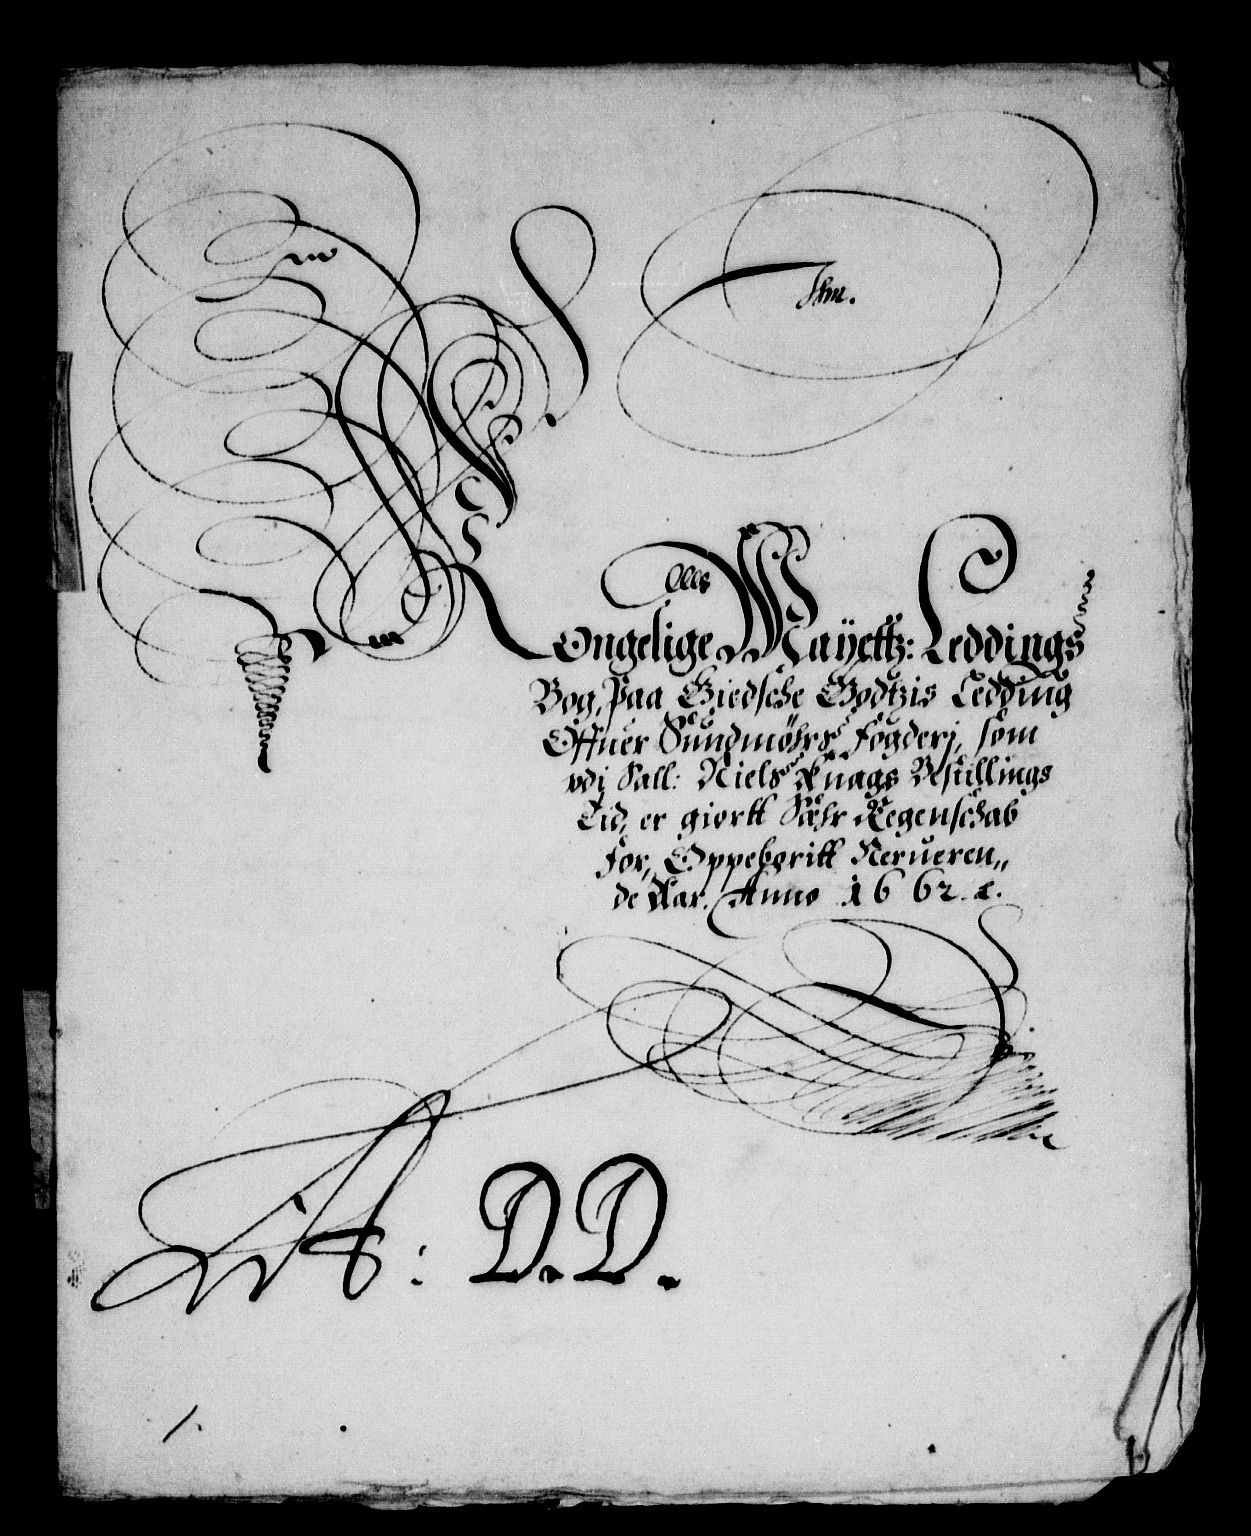 Kongelige Mayëttz: Leddings
Bog, Paa Giedsche Godtzis Ledding
Offuer Sundmöhrs Fogderj, som
vdj Sall: Niels Knags Bestillings
Tid, er giortt Sæhr Regenschab
for, Oppebgritt Nerueren,,
de Aar. Anno 1662. &.
N: D.D.
1.